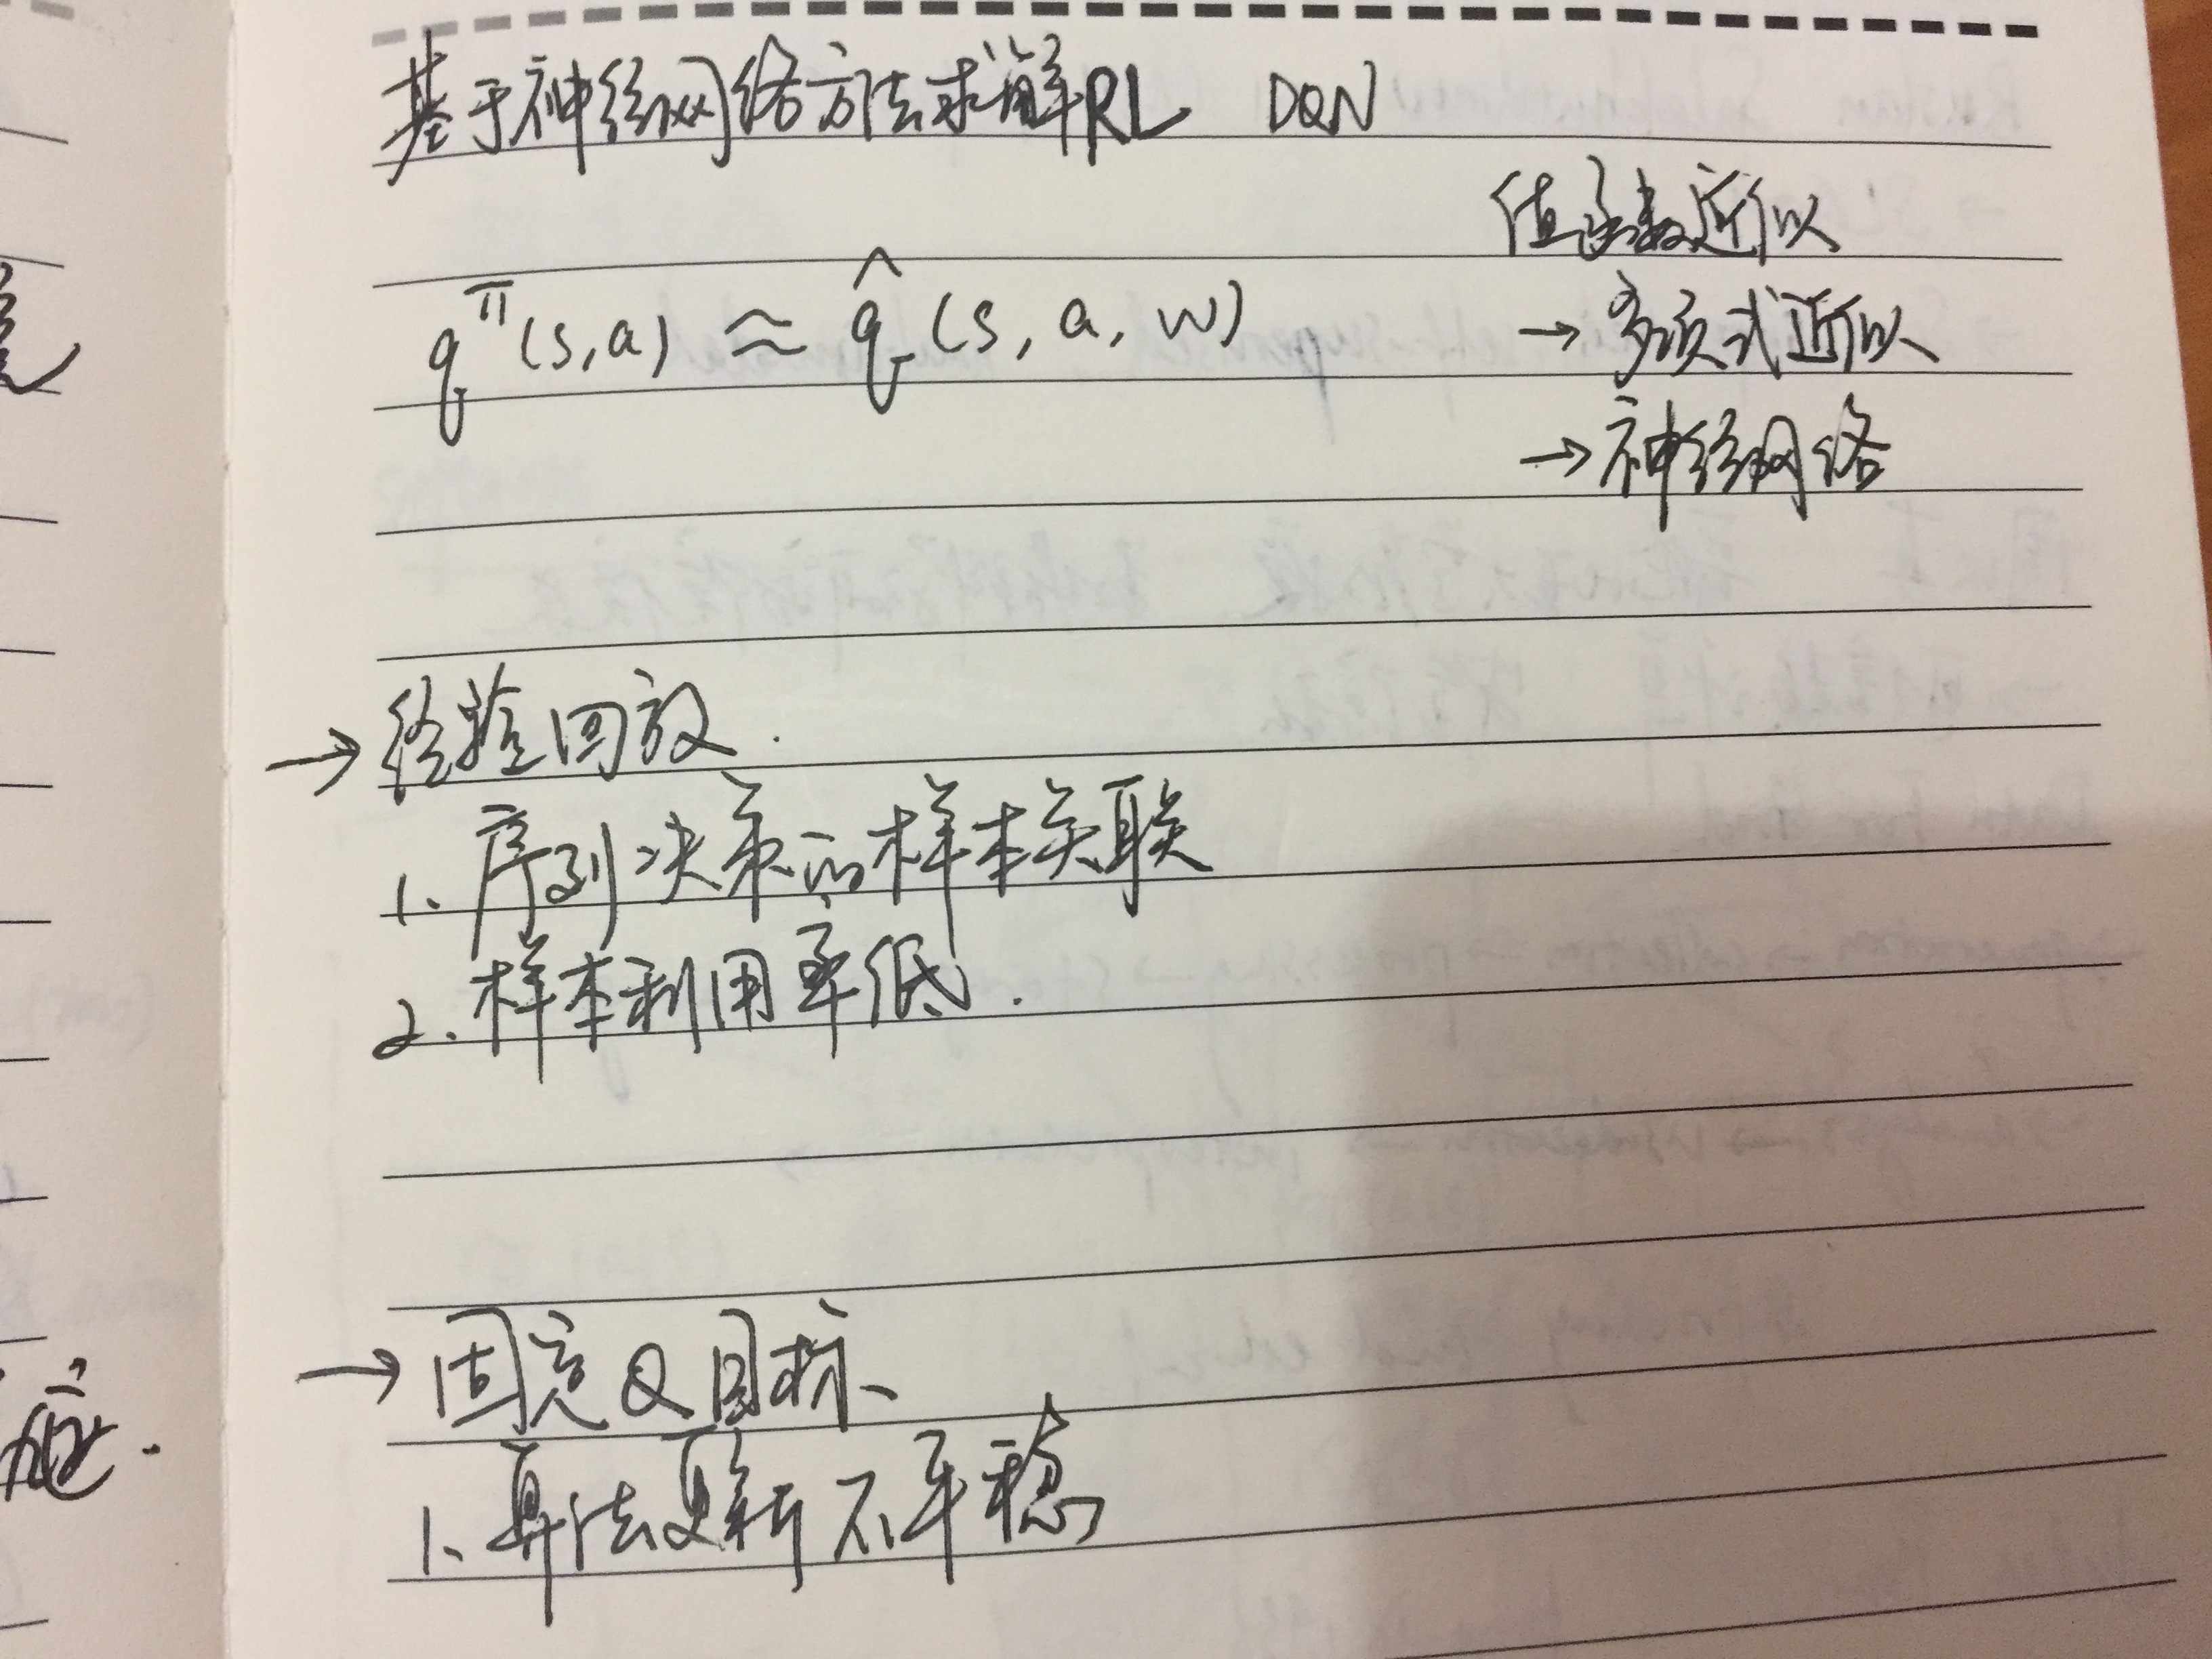 基于神经网络方法求解RL DQN
值函数近似
q^π(s,a) ≈ q̂(s, a, w)
→ 多项式近似
→ 神经网络
→ 经验回放.
1、序列决策的样本关联
2. 样本利用率低.
→ 固定Q目标、
1、算法更新不平稳